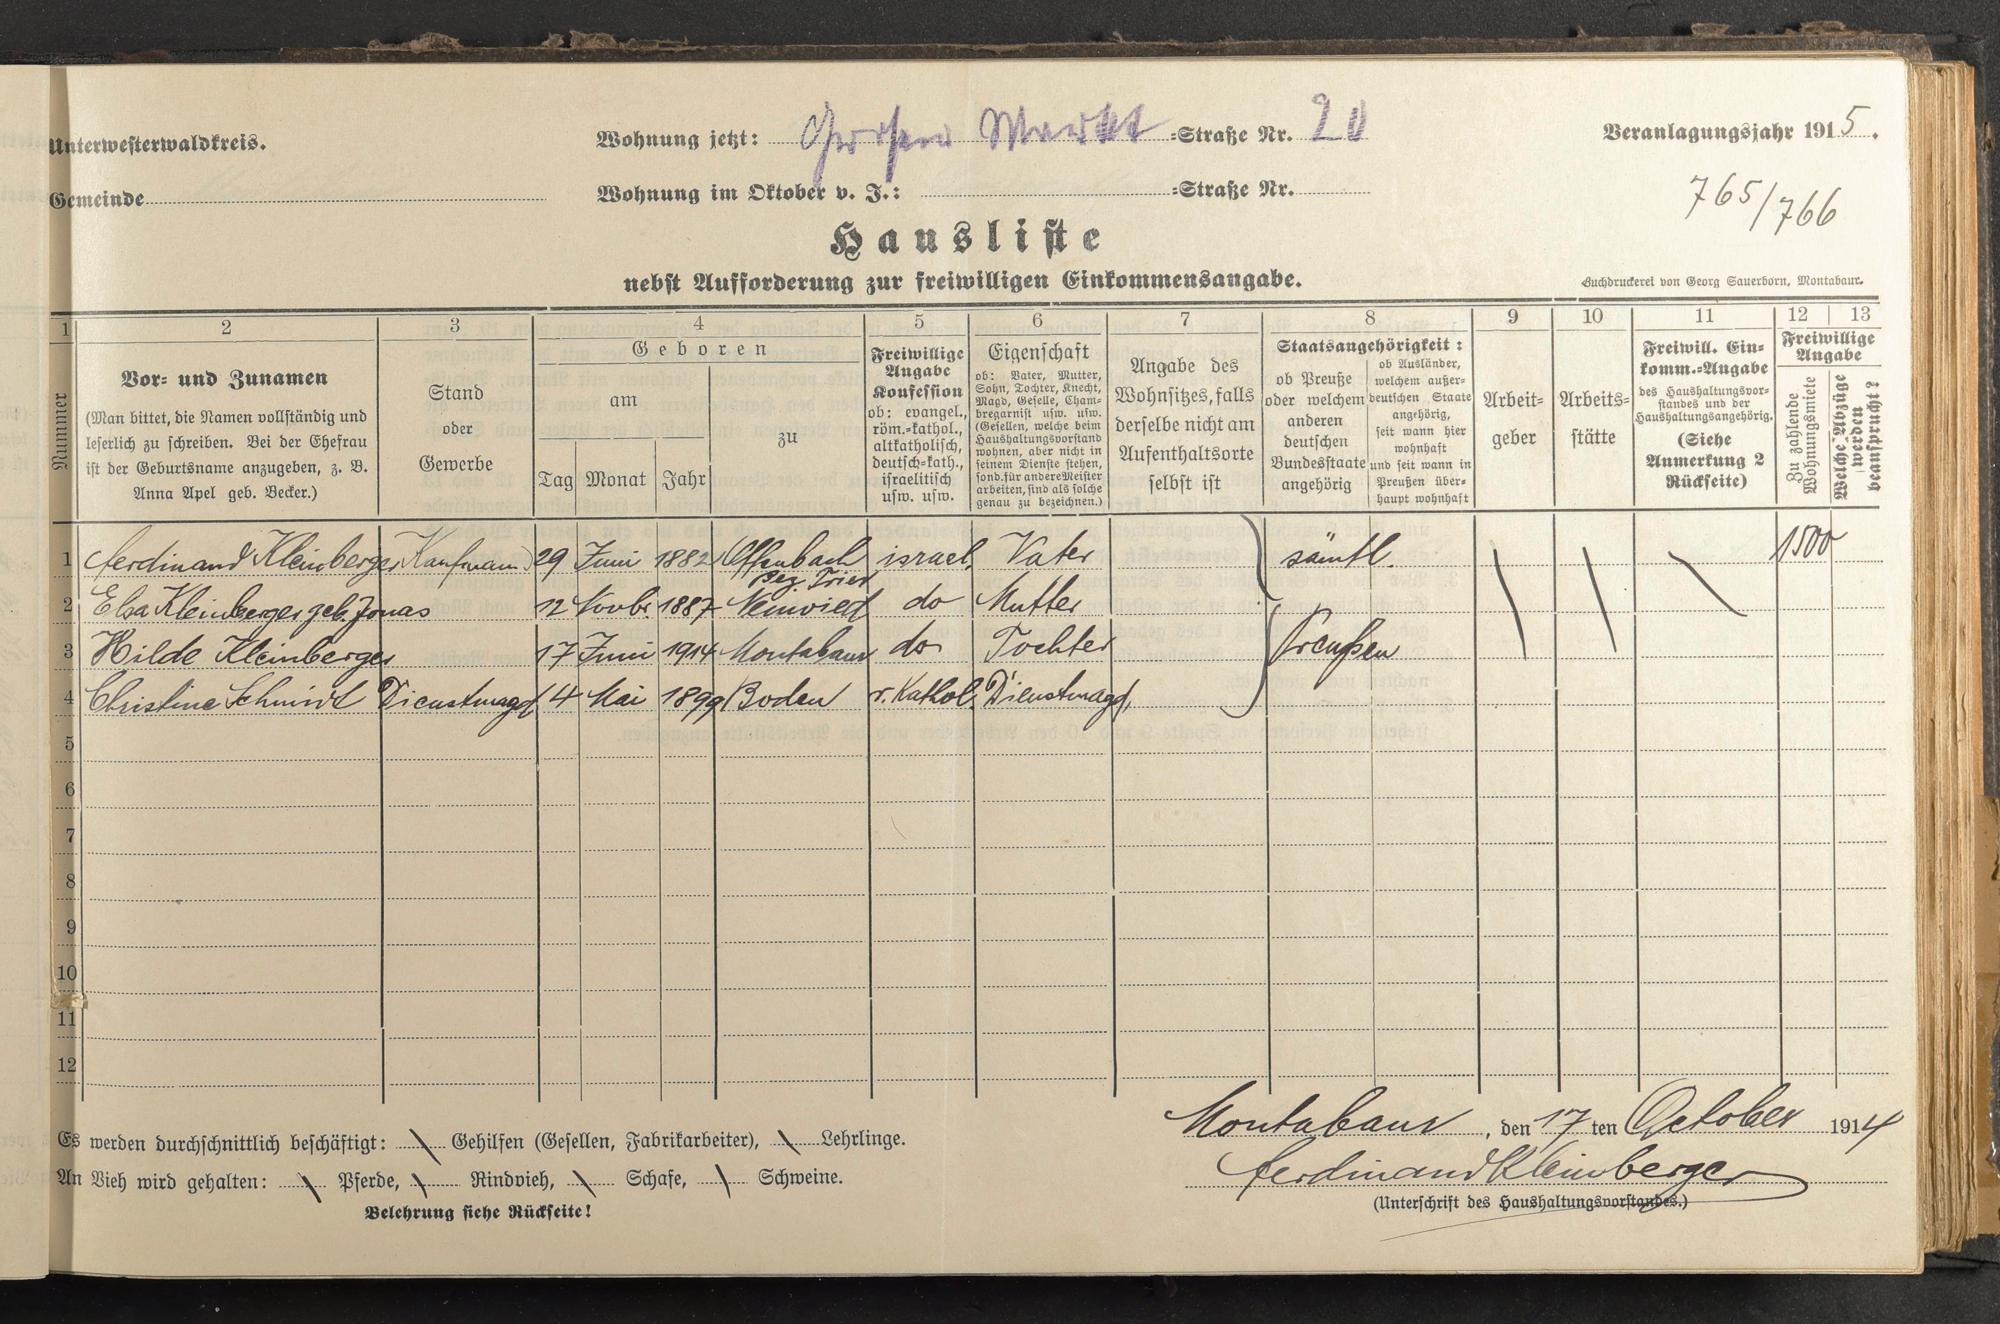 Unterwesterwaldkreis.
Wohnung jetzt: Großer Markt -Straße Nr. 20
Veranlagungsjahr 1915.
Gemeinde
Wohnung im Oktober v. J.: -Straße Nr.
765/766
Hausliste
nebst Aufforderung zur freiwilligen Einkommensangabe.
Buchdruckerei von Georg Sauerborn, Montabaur.
1 2 3 4 5 6 7 8 9 10 11 12 13
Nummer
Vor- und Zunamen
(Man bittet, die Namen vollständig und
leserlich zu schreiben. Bei der Ehefrau
ist der Geburtsname anzugeben, z. B.
Anna Apel geb. Becker.)
Stand
oder
Gewerbe
Geboren
am
Tag Monat Jahr
zu
Freiwillige
Angabe
Konfession
ob: evangel.,
röm.-kathol.,
altkatholisch,
deutsch-kath.,
israelitisch
usw. usw.
Eigenschaft
ob: Vater, Mutter,
Sohn, Tochter, Knecht,
Magd, Geselle, Cham-
bregarnist usw. usw.
(Gesellen, welche beim
Haushaltungsvorstand
wohnen, aber nicht in
seinem Dienste stehen,
sond. für andere Meister
arbeiten, sind als solche
genau zu bezeichnen.)
Angabe des
Wohnsitzes, falls
derselbe nicht am
Aufenthaltsorte
selbst ist
Staatsangehörigkeit:
ob Preuße
oder welchem
anderen
deutschen
Bundesstaate
angehörig
ob Ausländer,
welchem außer-
deutschen Staate
angehörig,
seit wann hier
wohnhaft
und seit wann in
Preußen über-
haupt wohnhaft
Arbeit-
geber
Arbeits-
stätte
Freiwill. Ein-
komm.-Angabe
des Haushaltungsvor-
standes und der
Haushaltungsangehörig.
(Siehe
Anmerkung 2
Rückseite)
Freiwillige
Angabe
Zu zahlende
Wohnungsmiete
Welche Abzüge
werden
beansprucht?
1 Ferdinand Kleinberger Kaufmann 29 Juni 1882 Offenbach israel. Vater sämtl. 1500
Bez Trier
2 Elsa Kleinberger geb. Jonas 12 Novbr. 1887 Neuwied do Mutter
3 Hilde Kleinberger 17 Juni 1914 Montabaur do Tochter Preußen
4 Christine Schmidt Dienstmagd 4 Mai 1899 Boden r. Kathol. Dienstmagd,
5
6
7
8
9
10
11
12
Es werden durchschnittlich beschäftigt: \ Gehilfen (Gesellen, Fabrikarbeiter), \ Lehrlinge.
An Vieh wird gehalten: \ Pferde, \ Rindvieh, \ Schafe, \ Schweine.
Belehrung siehe Rückseite!
Montabaur, den 17 ten October 1914
Ferdinand Kleinberger
(Unterschrift des Haushaltungsvorstandes.)